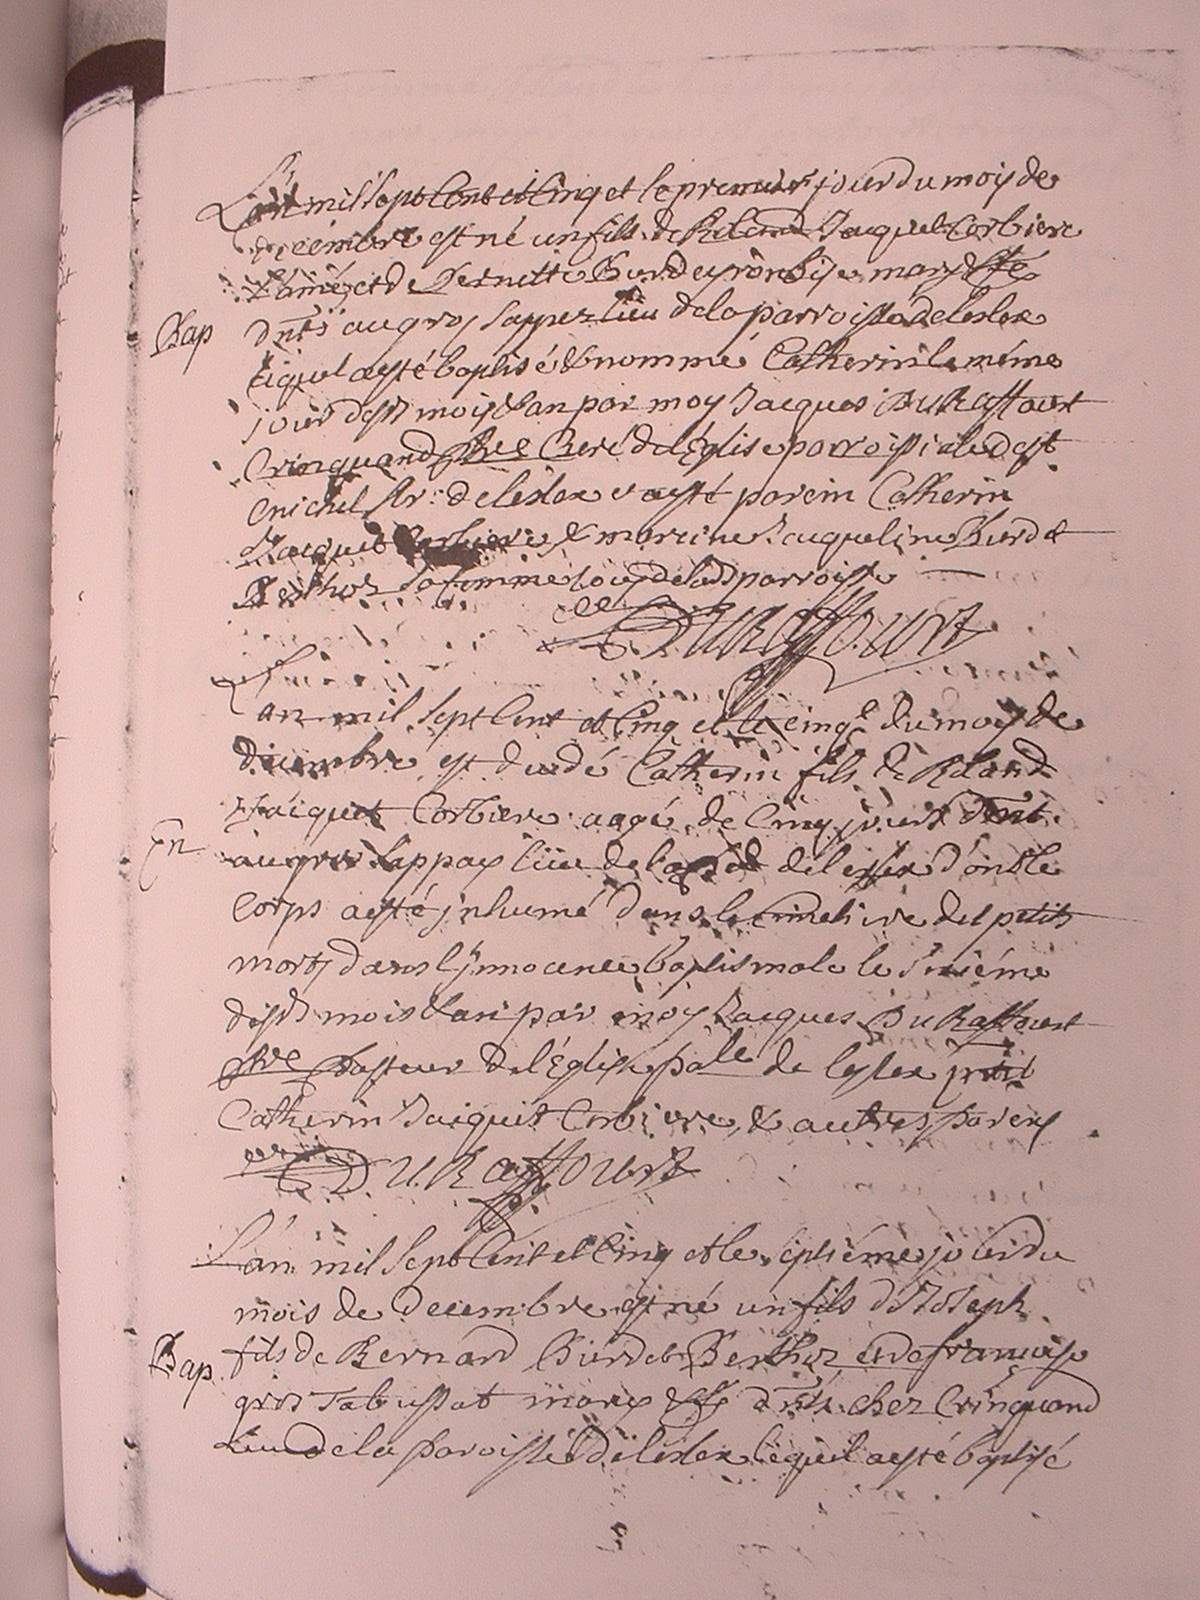 L'an mil sept Cent et Cinq et le premier jour du moy de
decembre est né un fils de Roland Jacquet Corbiere
l'ainé, et de Pernitte Burdeyron bise mary & fe
dnts au gros sappey lieu de la parroisse de lesler
Bap
liquel a esté baptisé & nommé Catherin le méme
jour desd moy & an par moy Jacques DuRaffourt
Crinquand Pbre Curé de l'Église parroissiale dest
michel Ar: de lesler & a esté parein Catherin
Jacquet Corbiere & mareine Jacqueline Burdet
Berthoz sa femme tous de lad parroisse
DuRaffourt
L'an mil sept Cent et Cinq et le cinqe du moy de
decembre est decedé Catherin fils de Roland
Jacquet Corbiere aagé de Cinq jours dnt
En
au gros sappay lieu de de lesler dont le
Corps a esté jnhumé dans le cimetiere des petits
morts dans l'jnnocence baptismale le sixiéme
desd mois & an par moy Jacques DuRaffourt
Pbre Pasteur de l'Église pale de lesler
Catherin Jacquet Corbiere & autres parens
DuRaffourt
L'an mil sept Cent et Cinq et le septiéme jour du
mois de decembre est né un fils d Joseph
Bap
fils de Bernard Burdet Berthoz et de francoise
gros Tabussat mary & fe dnts chez Crinquand
Lieu de la paroisse de lesler lequel a esté baptisé